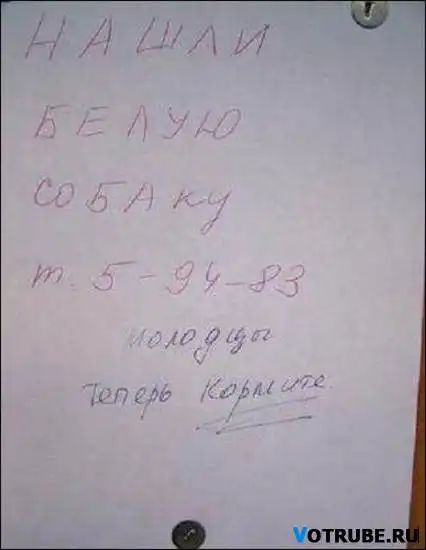 НАШЛИ
БЕЛУЮ
СОБАКУ
т. 5-94-83
молодцы
Теперь Кормите.
VOTRUBE.RU